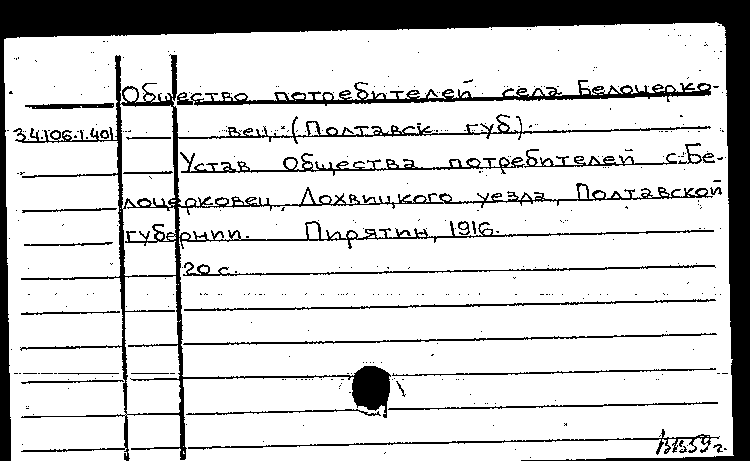 Общество потребителей села Белоцерко-
34.106.1.401 вец. (Полтавск. губ).
Устав Общества потребителей с. Бе-
лоцерковец, Лохвицкого уезда, Полтавской
губернии. Пирятин, 1916.
20 с.